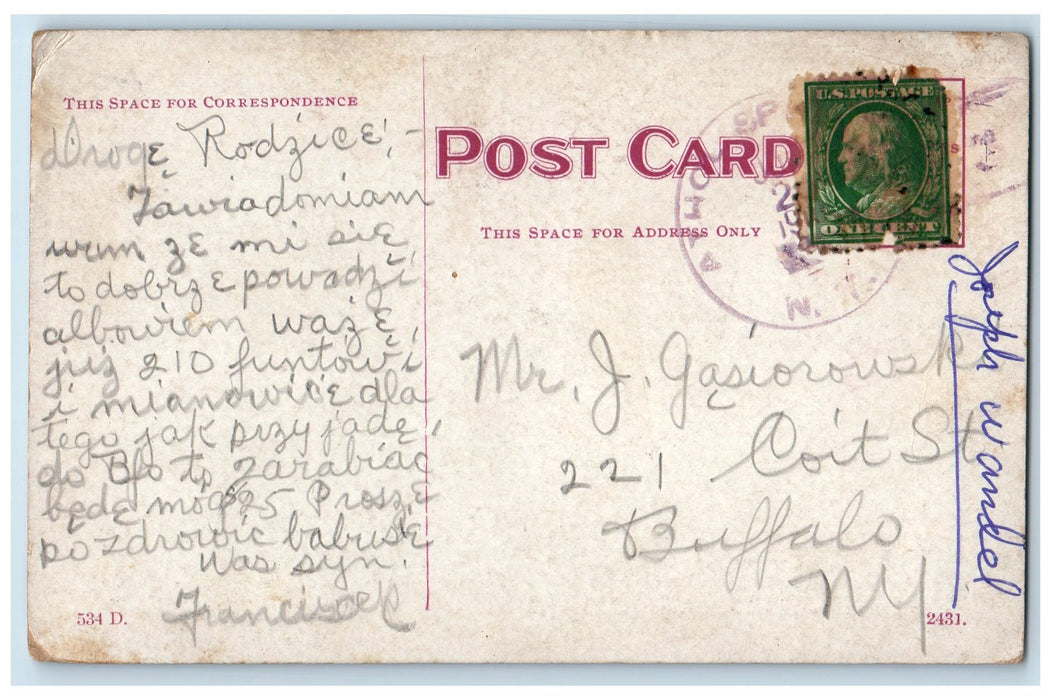 THIS SPACE FOR CORRESPONDENCE
Drogę Rodzice,-
Zawiadomiam
wum że mi się
to dobrze powadzi
albowiem ważę,
już 210 funtów i
i mianowicie dla
tego jak przyjadę,
do Bfo to zarabiać
będę móg $25 Proszę
pozdrowić babusię
Was syn.
Franciszek
534 D.
POST CARD
THIS SPACE FOR ADDRESS ONLY
ATHOL SP
N.Y.
U.S. POSTAGE
ONE CENT
Mr. J. Gąsiorowski
221 Coit St
Buffalo
NY
2431.
Joseph Wandel